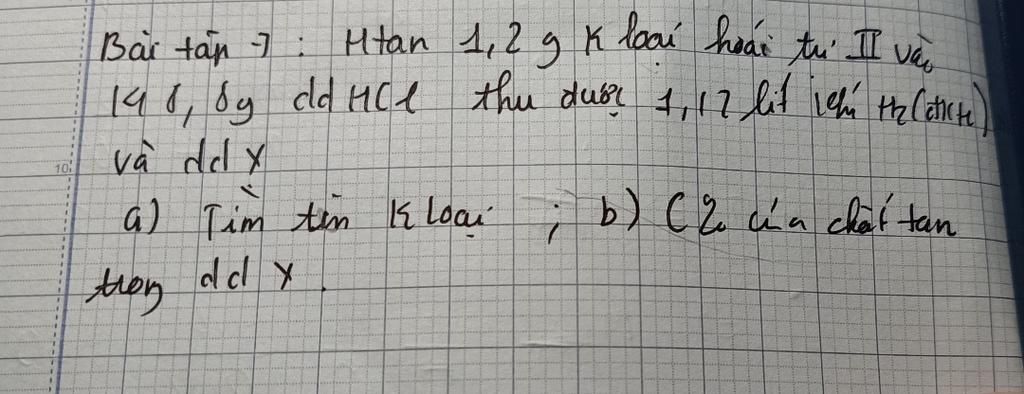 Bài tập 7 : Htan 1,2 g K loại hoái trị II vào
148,8g dd HCl thu được 1,12 lít khí H2 (đktc)
và dd X
a) Tìm tên K loại ; b) C% của chất tan
trong dd X.
10